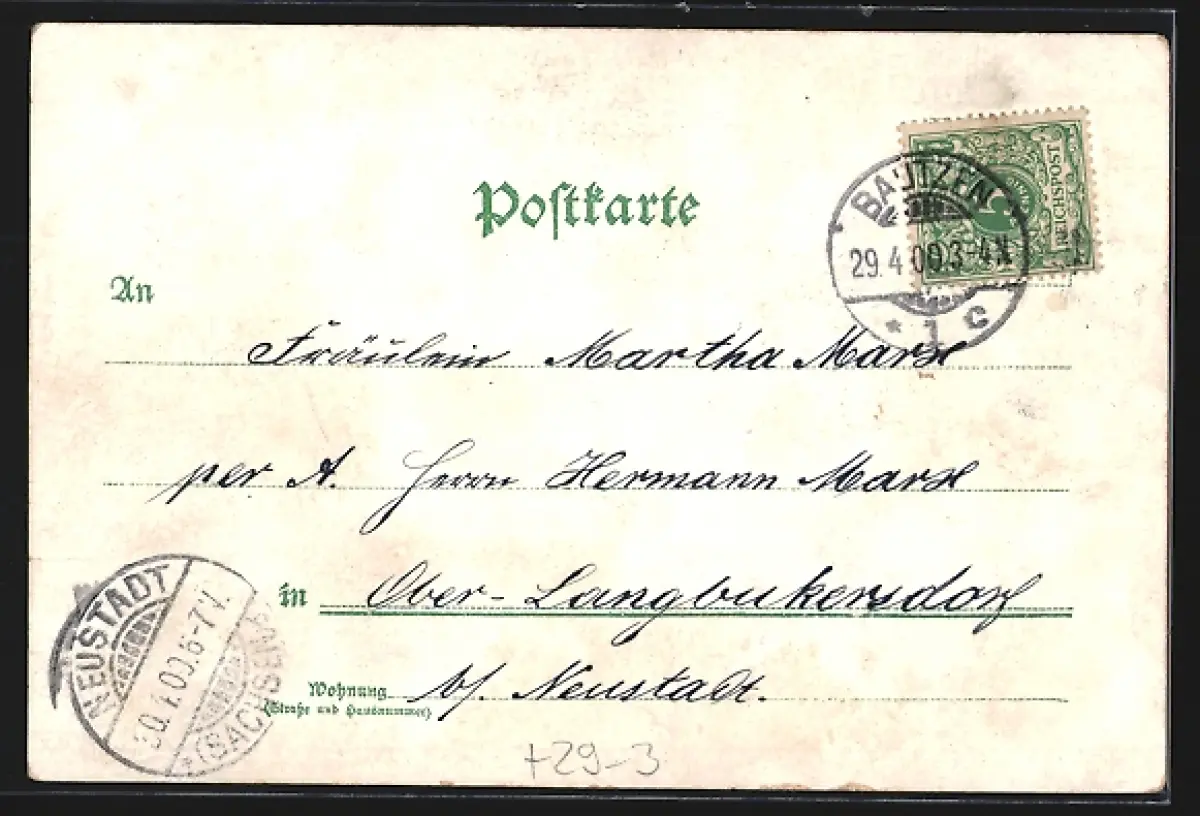 Postkarte
REICHSPOST
5
BAUTZEN
29.4.00.3-4N
* 1 c
An
Fräulein Martha Marx
per A. Herrn Hermann Marx
in Ober-Langbukersdorf
Wohnung b/ Neustadt.
(Straße und Hausnummer)
NEUSTADT
30.4.00.6-7V.
*(SACHSEN)
+29-3